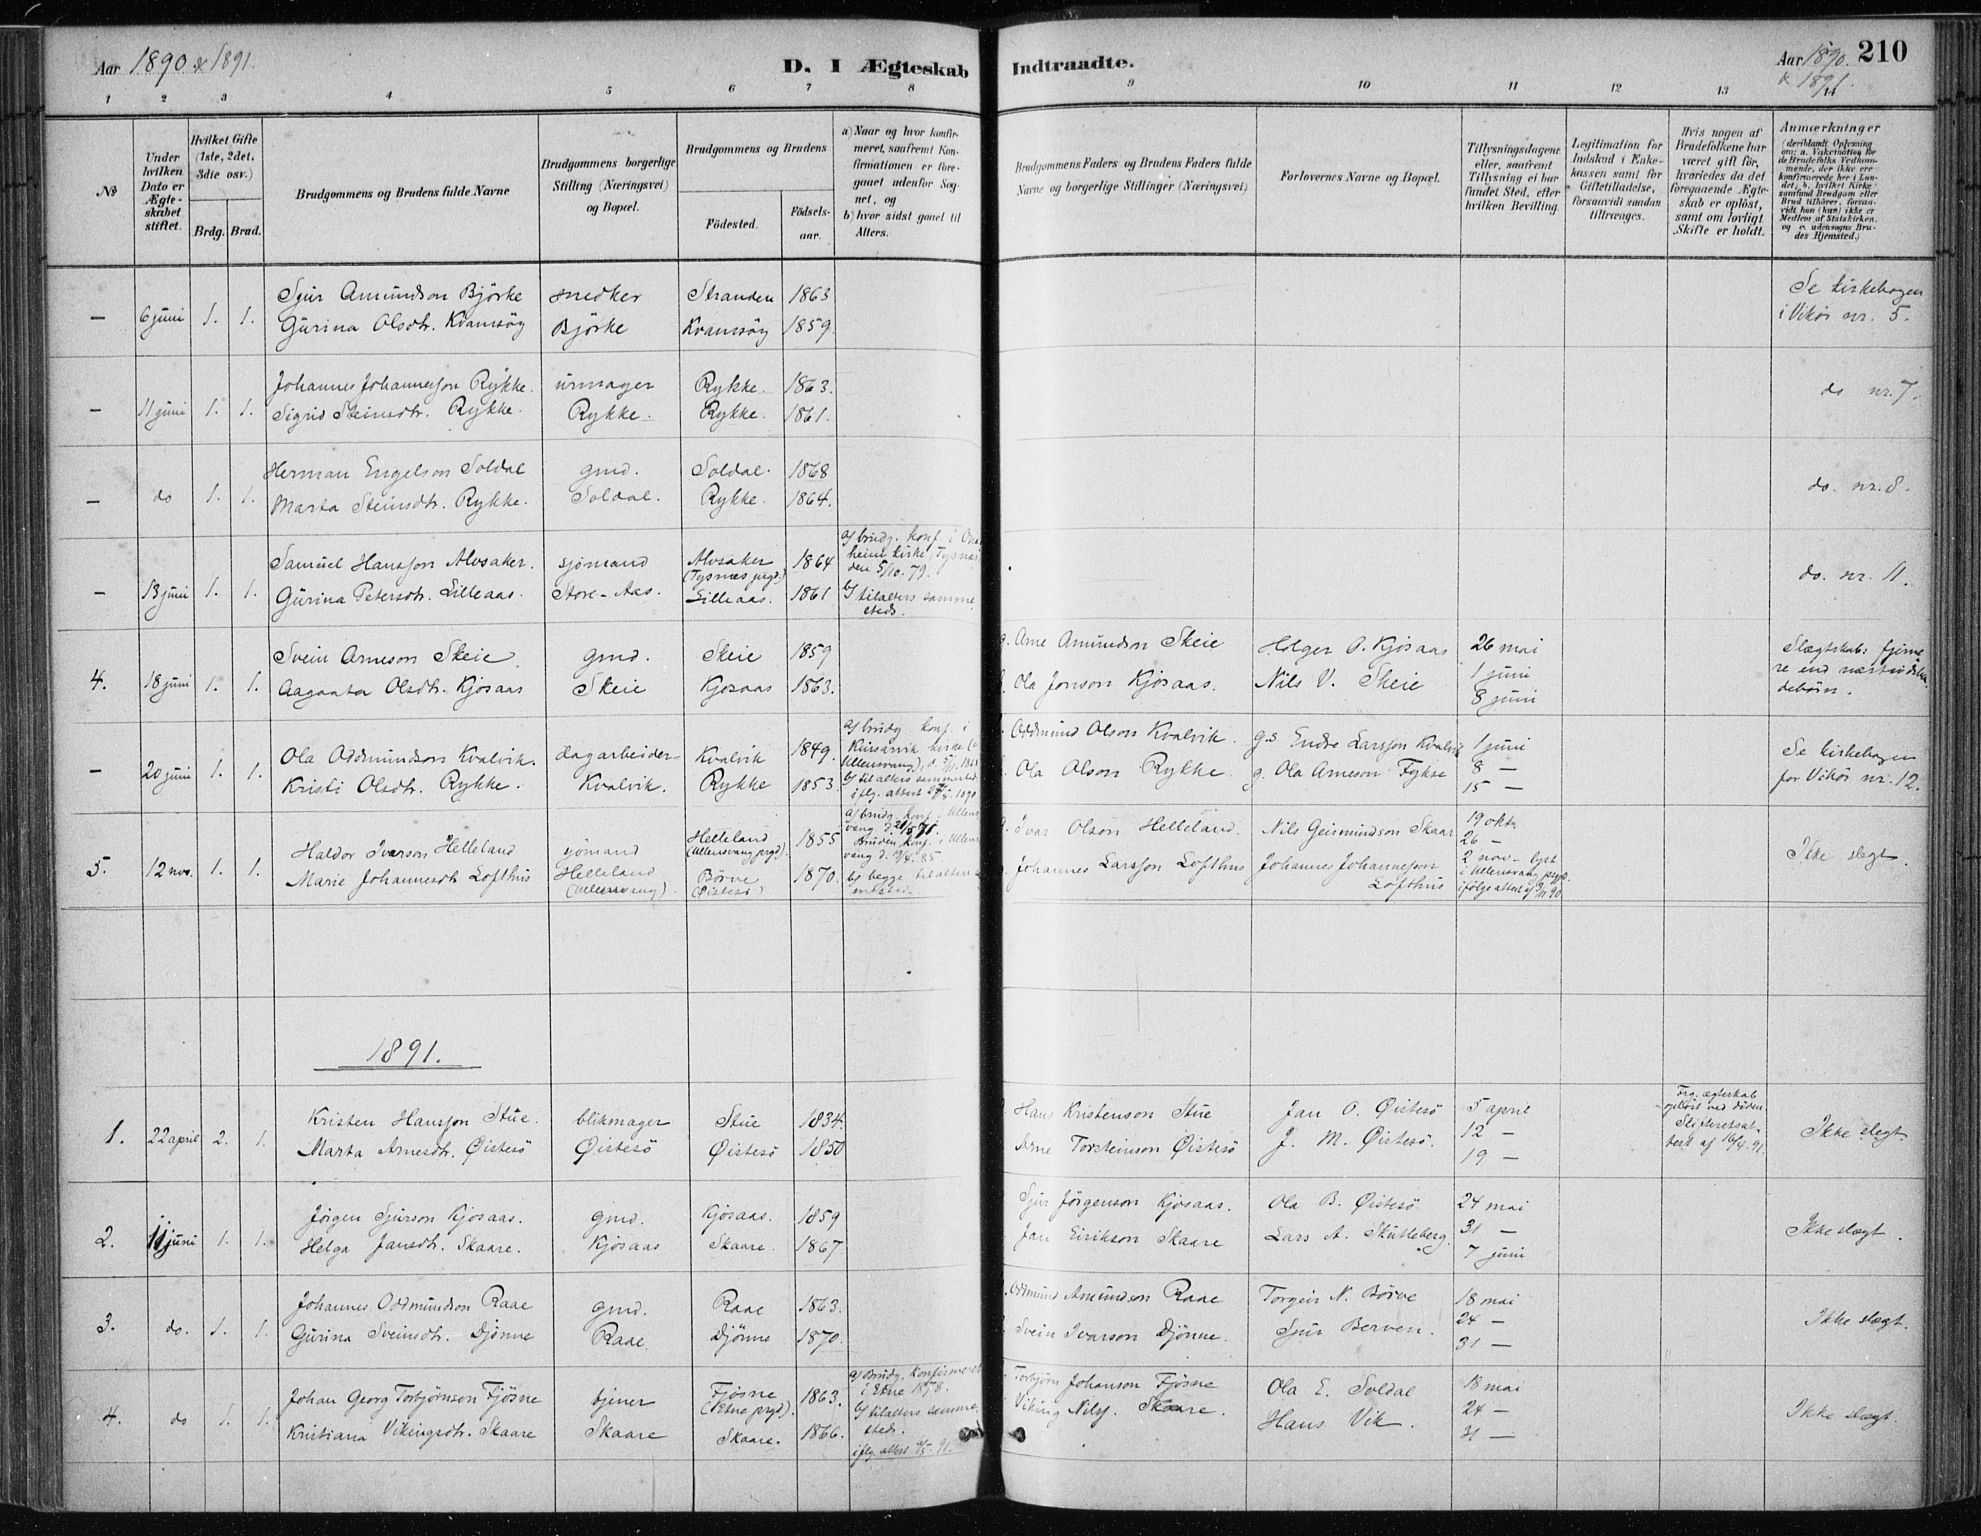 Aar 1890 & 1891.
D. I Ægteskab Indtraadte.
Aar 1890. 210
& 1891.
1 2 3 4 5 6 7 8 9 10 11 12 13 14
No
Under hvilken Dato er Ægteskabet stiftet.
Hvilket Gifte (1ste, 2det, 3die osv.)
Brdg. Brud.
Brudgommens og Brudens fulde Navne
Brudgommens borgerlige Stilling (Næringsvei) og Bopæl.
Brudgommens og Brudens
Fødested. Fødselsaar.
a) Naar og hvor konfirmeret, saafremt Konfirmationen er foregaaet udenfor Sognet, og
b) hvor sidst gaaet til Alters.
Brudgommens Faders og Brudens Faders fulde Navne og borgerlige Stillinger (Næringsvei)
Forlovernes Navne og Bopæl.
Tillysningsdagene eller, saafremt Tillysning ei har fundet Sted, efter hvilken Bevilling.
Legitimation for Indskud i Enkekassen samt for Giftetilladelse, forsaavidt saadan tiltrænges.
Hvis nogen af Brudefolkene har været gift før, hvorledes da det foregaaende Ægteskab er opløst, samt om lovligt Skifte er holdt.
Anmærkninger
(deriblandt Oplysning om: a. Vakcination for de Brudefolks Vedkommende, der ikke ere konfirmerede her i Landet; b. hvilket Kirkesamfund Brudgom eller Brud tilhører, forsaavidt han (hun) ikke er Medlem af Statskirken, og c. udensogns Brudes Hjemsted.)
– 6 juni 1. 1. Sjur Amundson Björke snedker Stranden 1863 Se kirkebogen
Gurina Olsdtr. Kvamsøy Björke Kvamsøy 1859. i Vikör nr. 5.
– 11 juni 1. 1. Johannes Johannesson Rykke. urmager Rykke. 1863. do nr. 7.
Sigrid Steinsdtr. Rykke. Rykke. Rykke. 1861.
– do 1. 1. Herman Engelson Soldal gmd. Soldal. 1868 do. nr. 8.
Marta Steinsdtr. Rykke. Soldal. Rykke. 1864.
– 13 juni 1. 1. Samuel Hansson Alvsaker. sjömand Alvsaker (Tysnes prgd.) 1864 a/ brudg. konf. i heim kirke, Tysnæs den 5/10. 79. do. nr. 11.
Gurina Petersdtr. Lilleaas. Store-Aas. Lilleaas. 1861 b/ tilalters sammesteds.
4. 18 juni 1. 1. Svein Arneson Skeie gmd. Skeie 1859 Arne Amundson Skeie Holger O. Kjosaas 26 mai
Aagaata Olsdtr. Kjosaas Skeie Kjosaas 1863. Ola Jonson Kjosaas. Nils V. Skeie 1 juni
8 juni
Slægtskab: fjernere end næstsødskendebörn.
– 20 juni 1. 1. Ola Oddmundson Kvalvik. dagarbeider Kvalvik 1849. a/ brudg. konf. i Kinsarvik kirke Ullensvang), Oddmund Olson Kvalvik. g.s Endre Larsson Kvalvik 1 juni
Kristi Olsdtr. Rykke. Kvalvik. Rykke 1853. b/ tilalters sammested. iflg. attest 1890 Ola Olson Rykke. g. Ola Arneson Fykse 8 –
15 –
Se kirkebogen for Vikör nr. 12.
5. 12 nov. 1. 1. Haldor Ivarson Helleland sjömand Helleland (Ullensvang prgd). 1855 a/ brudg. konf. i Ullensvang d. Ivar Olson Helleland. Nils Geirmundson Skaar 19 okt.
26 –
Marie Johannesdtr. Lofthus Helleland (Ullensvang). Börve (Östesö) 1870. Bruden konf. i Ullensvang d. 85. b/ begge tilalters Johannes Larsson Lofthus Johannes Johannesson Lofthus 2 nov – lyst i Ullensvang prgd. ifølge attest af 90
Ikke slegt.
1891.
1. 22 april 2. 1. Kristen Hansson Stue. blikmager Stue 1834. Hans Kristenson Stue Jan O. Øistesö 5 april
Marta Arnesdtr. Øistesö Øistesö Øistesö 1850 Arne Torsteinson Øistesö J. M. Øistesö. 12 –
19 –
Frg. ægteskab opløst ved døden. Skifteretsattest af 16/4. 91.
Ikke slegt
2. 11 juni 1. 1. Jörgen Sjurson Kjosaas. gmd. Kjosaas. 1859 Sjur Jörgenson Kjosaas. Ola B. Øistesö 24 mai
Helga Jansdtr. Skaare. Kjosaas Skaare. 1867 Jan Eirikson Skaare Lars A. Skutleberg. 31 –
7 juni
Ikke slegt.
3. do. 1. 1. Johannes Oddmundson Raae gmd. Raae 1863. Oddmund Amundson Raae Torgeir N. Börve 18 mai
Gurina Sveinsdtr. Djönne Raae. Djönne 1870. Svein Ivarson Djönne. Sjur Berven. 24 –
31 –
Ikke slegt.
4. do 1. 1. Johan Georg Torbjörnson Fjösne tjener Fjösne (Etne prgd). 1863. a/ Brudg. Konfirmeret i Etne 1878. Torbjörn Johanson Fjösne Ola E. Soldal 18 mai
Kristiana Vikingsdtr. Skaare Skaare Skaare. 1866. b/ tilalters sammesteds. iflg. attest 91. Viking Nils. Skaare. Hans Vik. 24 –
31 –
Ikke slegt.